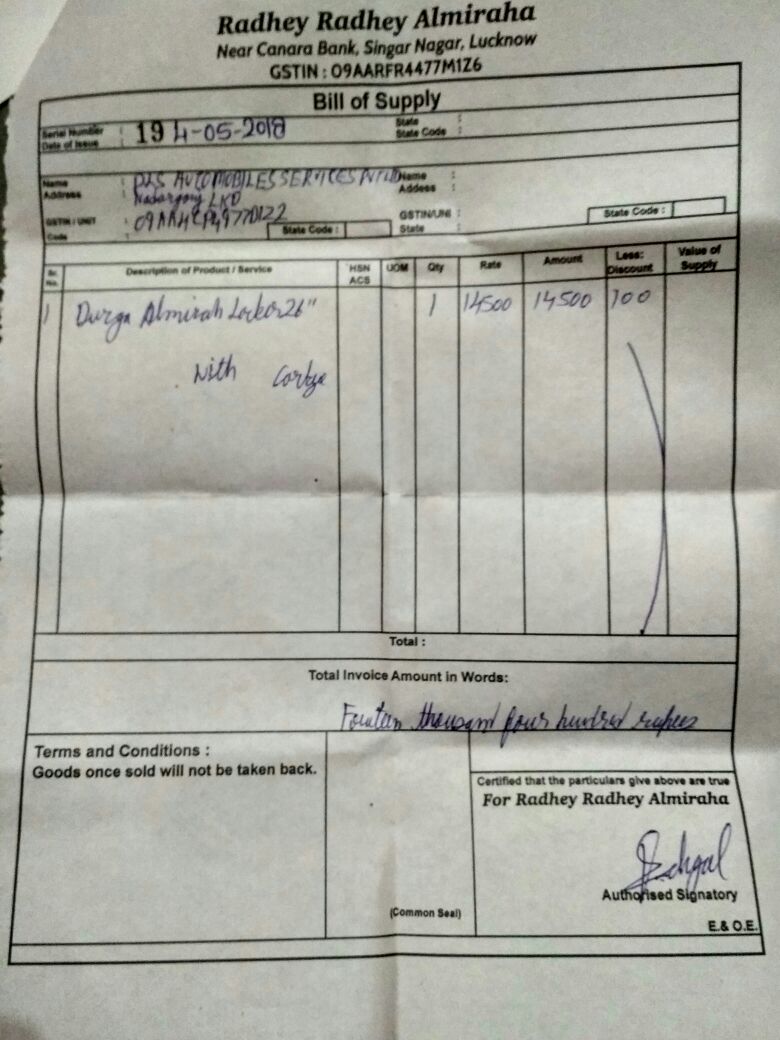 Radhey Radhey Almiraha
Near Canara Bank, Singar Nagar, Lucknow
GSTIN : 09AARFR4477M1Z6
Bill of Supply
Serial Number : 19
Date of Issue : 4-05-2018
State :
State Code :
Name : AUTOMOBILES SERVICES
Address : LKO
Name :
Addess :
GSTIN / UNIT :
Code
State Code :
GSTIN/UNI :
State :
State Code :
Sr. No. Description of Product / Service HSN ACS UOM Qty Rate Amount Less: Discount Value of Supply
1 Durga Almirah Locker 26" 1 14500 14500 100
With
Total :
Total Invoice Amount in Words:
Fourteen thousand four hundred rupees
Terms and Conditions :
Goods once sold will not be taken back.
Certified that the particulars give above are true
For Radhey Radhey Almiraha
Authorised Signatory
(Common Seal)
E.& O.E.